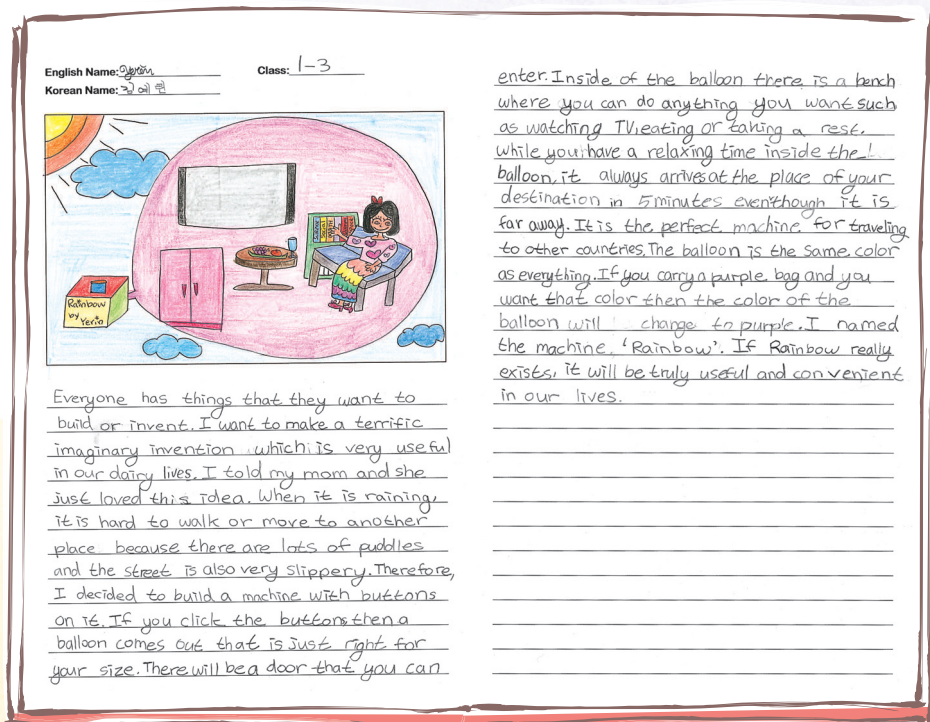 English Name: Yerin
Class: 1-3
Korean Name: 김예린
Rainbow
by
Yerin
Everyone has things that they want to
build or invent. I want to make a terrific
imaginary invention which is very useful
in our dairy lives. I told my mom and she
just loved this idea. When it is raining,
it is hard to walk or move to another
place because there are lots of puddles
and the street is also very slippery. Therefore,
I decided to build a machine with buttons
on it. If you click the buttons then a
balloon comes out that is just right for
your size. There will be a door that you can
enter. Inside of the balloon there is a bench
where you can do anything you want such
as watching TV, eating or taking a rest.
While you have a relaxing time inside the
balloon, it always arrives at the place of your
destination in 5 minutes even though it is
far away. It is the perfect machine for traveling
to other countries. The balloon is the same color
as everything. If you carry a purple bag and you
want that color then the color of the
balloon will change to purple. I named
the machine, 'Rainbow'. If Rainbow really
exists, it will be truly useful and convenient
in our lives.